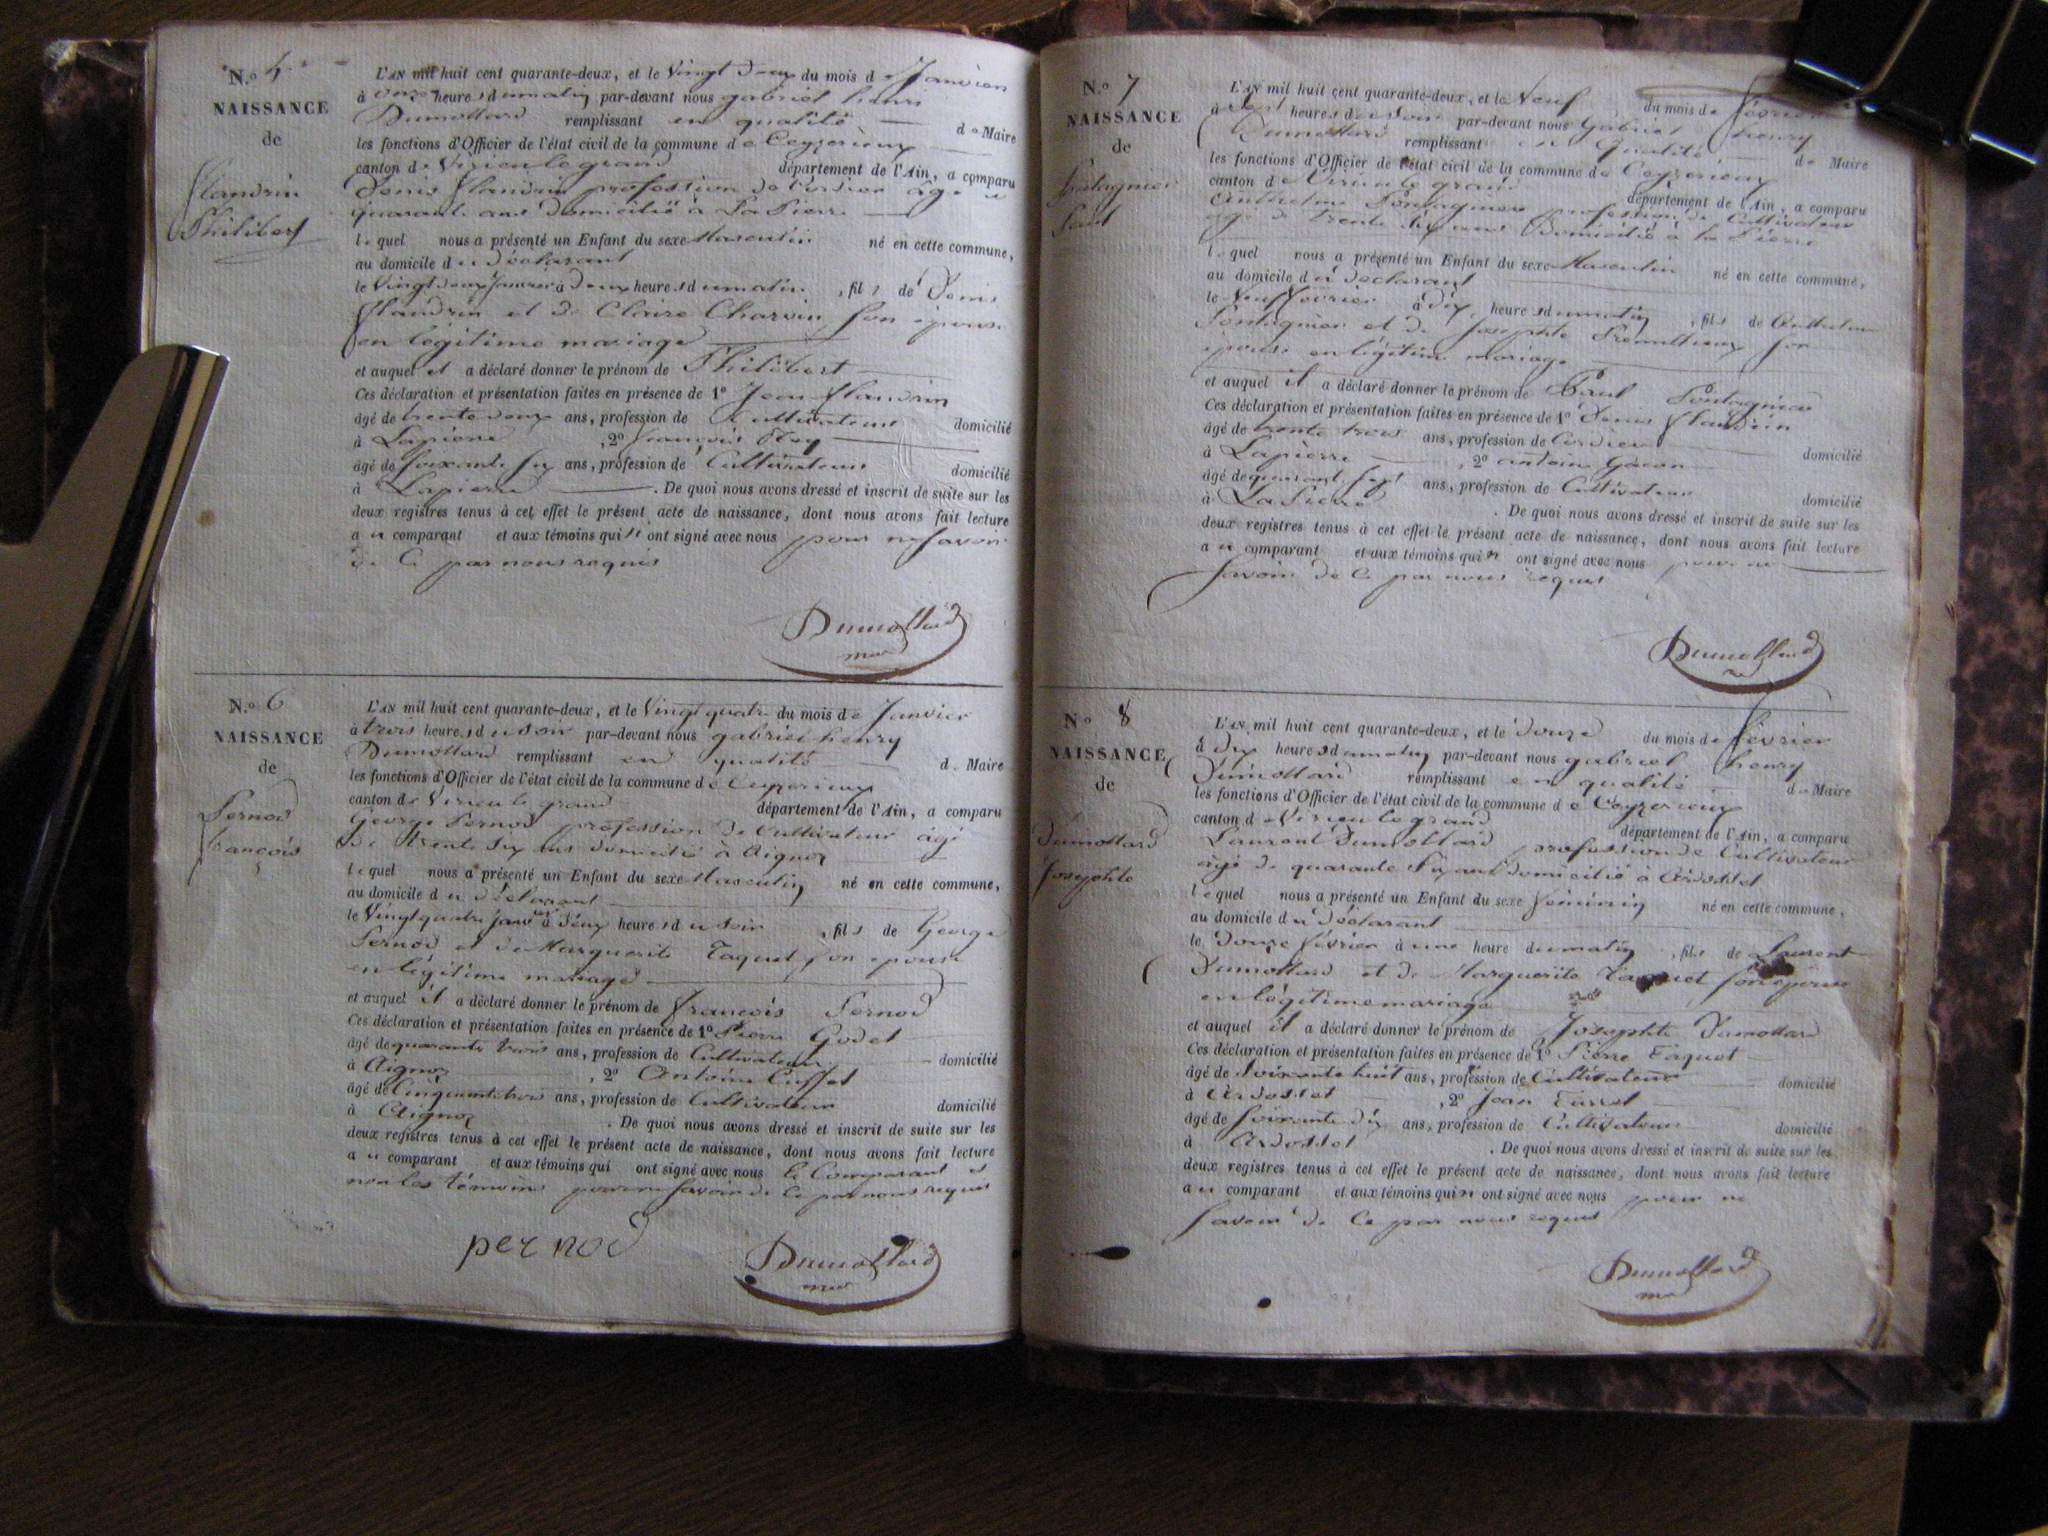 N.o
NAISSANCE
de
flandrin
Philibert
L'AN mil huit cent quarante-deux, et le Vingt deux du mois de Janvier
à onze heures du matin par-devant nous gabriel henri
Dumollard remplissant en qualité de Maire
les fonctions d'Officier de l'état civil de la commune de Ceyzerieux
canton de Virieu le grand département de l'Ain, a comparu
Denis flandrin profession de Cordier âgé de
quarante ans domicilié à La Pierre
lequel nous a présenté un Enfant du sexe Masculin né en cette commune,
au domicile du déclarant
le Vingt deux Janvier à deux heures du matin, fils de Denis
flandrin et de Claire Charvin son épouse
en légitime mariage
et auquel il a déclaré donner le prénom de Philibert
Ces déclaration et présentation faites en présence de 1o Jean flandrin
âgé de trente deux ans, profession de Cultivateur domicilié
à Lapierre, 2o françois Roy
âgé de soixante six ans, profession de Cultivateur domicilié
à Lapierre. De quoi nous avons dressé et inscrit de suite sur les
deux registres tenus à cet effet le présent acte de naissance, dont nous avons fait lecture
au comparant et aux témoins qui n'ont signé avec nous pour ne savoir
de ce par nous requis
Dumollard
N.o 6
NAISSANCE
de
Pernod
françois
L'AN mil huit cent quarante-deux, et le Vingt quatre du mois de Janvier
à trois heures du soir par-devant nous gabriel henry
Dumollard remplissant en qualité de Maire
les fonctions d'Officier de l'état civil de la commune de Ceyzerieux
canton de Virieu le grand département de l'Ain, a comparu
George Pernod profession de Cultivateur âgé
de trente six ans domicilié à Aignoz
lequel nous a présenté un Enfant du sexe Masculin né en cette commune,
au domicile du déclarant
le Vingt quatre janvier à deux heures du soir, fils de George
Pernod et de Marguerite Taquet son épouse
en légitime mariage
et auquel il a déclaré donner le prénom de françois Pernod
Ces déclaration et présentation faites en présence de 1o Pierre Godet
âgé de quarante trois ans, profession de Cultivateur domicilié
à Aignoz, 2o Antoine
âgé de Cinquante trois ans, profession de Cultivateur domicilié
à Aignoz. De quoi nous avons dressé et inscrit de suite sur les
deux registres tenus à cet effet le présent acte de naissance, dont nous avons fait lecture
au comparant et aux témoins qui ont signé avec nous le Comparant et
non les témoins pour ne savoir de ce par nous requis
pernod
Dumollard
N.o 7
NAISSANCE
de
Pontagnier
Paul
L'AN mil huit cent quarante-deux, et le Neuf du mois de février
à heures du soir par-devant nous Gabriel henry
Dumollard remplissant en Qualité de Maire
les fonctions d'Officier de l'état civil de la commune de Ceyzerieux
canton de Virieu le grand département de l'Ain, a comparu
Anthelme Pontagnier profession de Cultivateur
âgé de trente six ans Domicilié à la Pierre
lequel nous a présenté un Enfant du sexe Masculin né en cette commune,
au domicile du déclarant
le Neuf fevrier à dix heures du matin, fils de Anthelme
Pontagnier et de Josephte son
épouse en légitime mariage
et auquel il a déclaré donner le prénom de Paul Pontagnier
Ces déclaration et présentation faites en présence de 1o Denis flandrin
âgé de trente trois ans, profession de Cordier domicilié
à Lapierre, 2o antoine Gacon
âgé de quarante sept ans, profession de Cultivateur domicilié
à La Pierre. De quoi nous avons dressé et inscrit de suite sur les
deux registres tenus à cet effet le présent acte de naissance, dont nous avons fait lecture
au comparant et aux témoins qui n'ont signé avec nous pour ne
savoir de ce par nous requis
Dumollard
N.o 8
NAISSANCE
de
Dumollard
Josephte
L'AN mil huit cent quarante-deux, et le douze du mois de février
à dix heures du matin par-devant nous gabriel henry
Dumollard remplissant en qualité de Maire
les fonctions d'Officier de l'état civil de la commune de Ceyzerieux
canton de Virieu le grand département de l'Ain, a comparu
Laurent Dumollard profession de Cultivateur
âgé de quarante six ans domicilié à Ardosset
lequel nous a présenté un Enfant du sexe féminin né en cette commune,
au domicile du déclarant
le douze février à une heure du matin, fils de Laurent
Dumollard et de Marguerite Taquet son épouse
en légitime mariage
et auquel il a déclaré donner le prénom de Josephte Dumollard
Ces déclaration et présentation faites en présence de 1o Pierre Taquet
âgé de soixante huit ans, profession de Cultivateur domicilié
à Ardosset, 2o Jean
âgé de soixante dix ans, profession de Cultivateur domicilié
à Ardosset. De quoi nous avons dressé et inscrit de suite sur les
deux registres tenus à cet effet le présent acte de naissance, dont nous avons fait lecture
au comparant et aux témoins qui n'ont signé avec nous pour ne
savoir de ce par nous requis
Dumollard